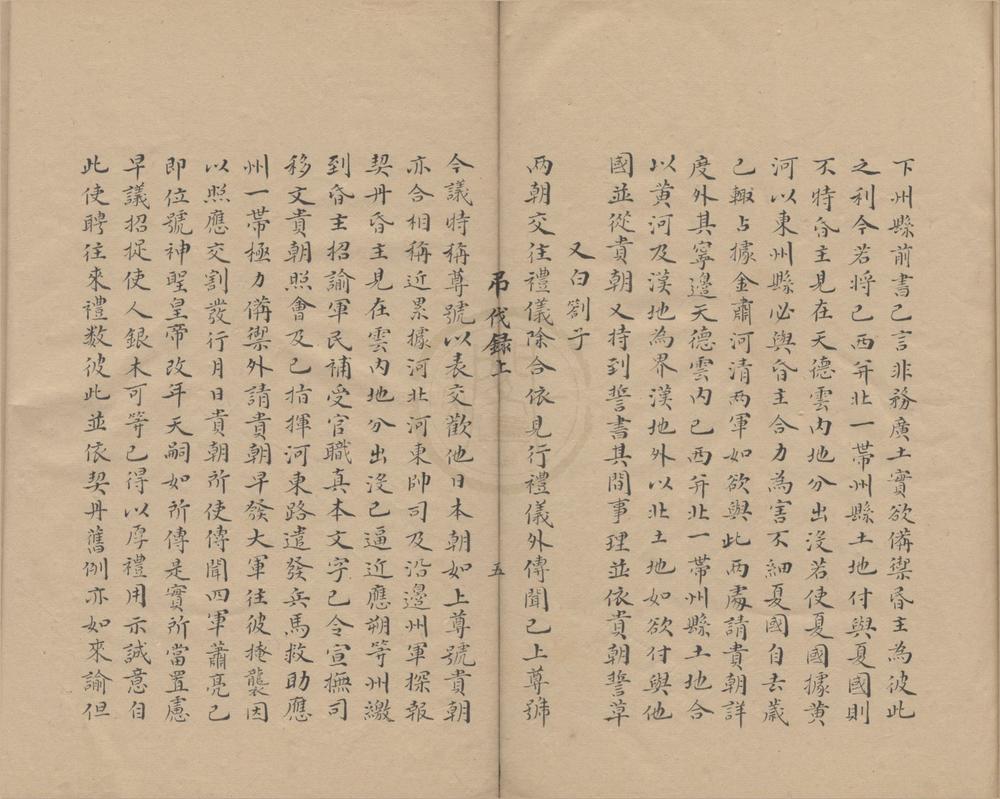 下州縣前書已言非務廣土實欲備禦昏主為彼此
之利今若將已西并北一帶州縣土地付與夏國則
不特昏主見在天德雲内地分出没若使夏國據黄
河以東州縣必與昏主合力為害不細夏國自去歳
已輙占據金肅河清兩軍如欲與此兩處請貴朝詳
度外其寧邊天德雲内已西并北一帶州縣土地合
以黄河及漢地為界漢地外以北土地如欲付與他
國並從貴朝又持到誓書其間事理並依貴朝誓草
又白劄子
兩朝交往禮儀除合依見行禮儀外傳聞已上尊號
吊伐録上
五
今議時稱尊號以表交歡他日本朝如上尊號貴朝
亦合相稱近累據河北河東帥司及沿邊州軍探報
契丹昏主見在雲内地分出没已逼近應朔等州繳
到昏主招諭軍民補受官職真本文字已令宣撫司
移文貴朝照會及已指揮河東路遣發兵馬救助應
州一帶極力備禦外請貴朝早發大軍往彼掩襲因
以照應交割發行月日貴朝所使傳聞四軍蕭亮已
即位號神聖皇帝改年天嗣如所傳是實所當置慮
早議招捉使人銀木可等已得以厚禮用示誠意自
此使聘往來禮数彼此並依契丹舊例亦如來諭但